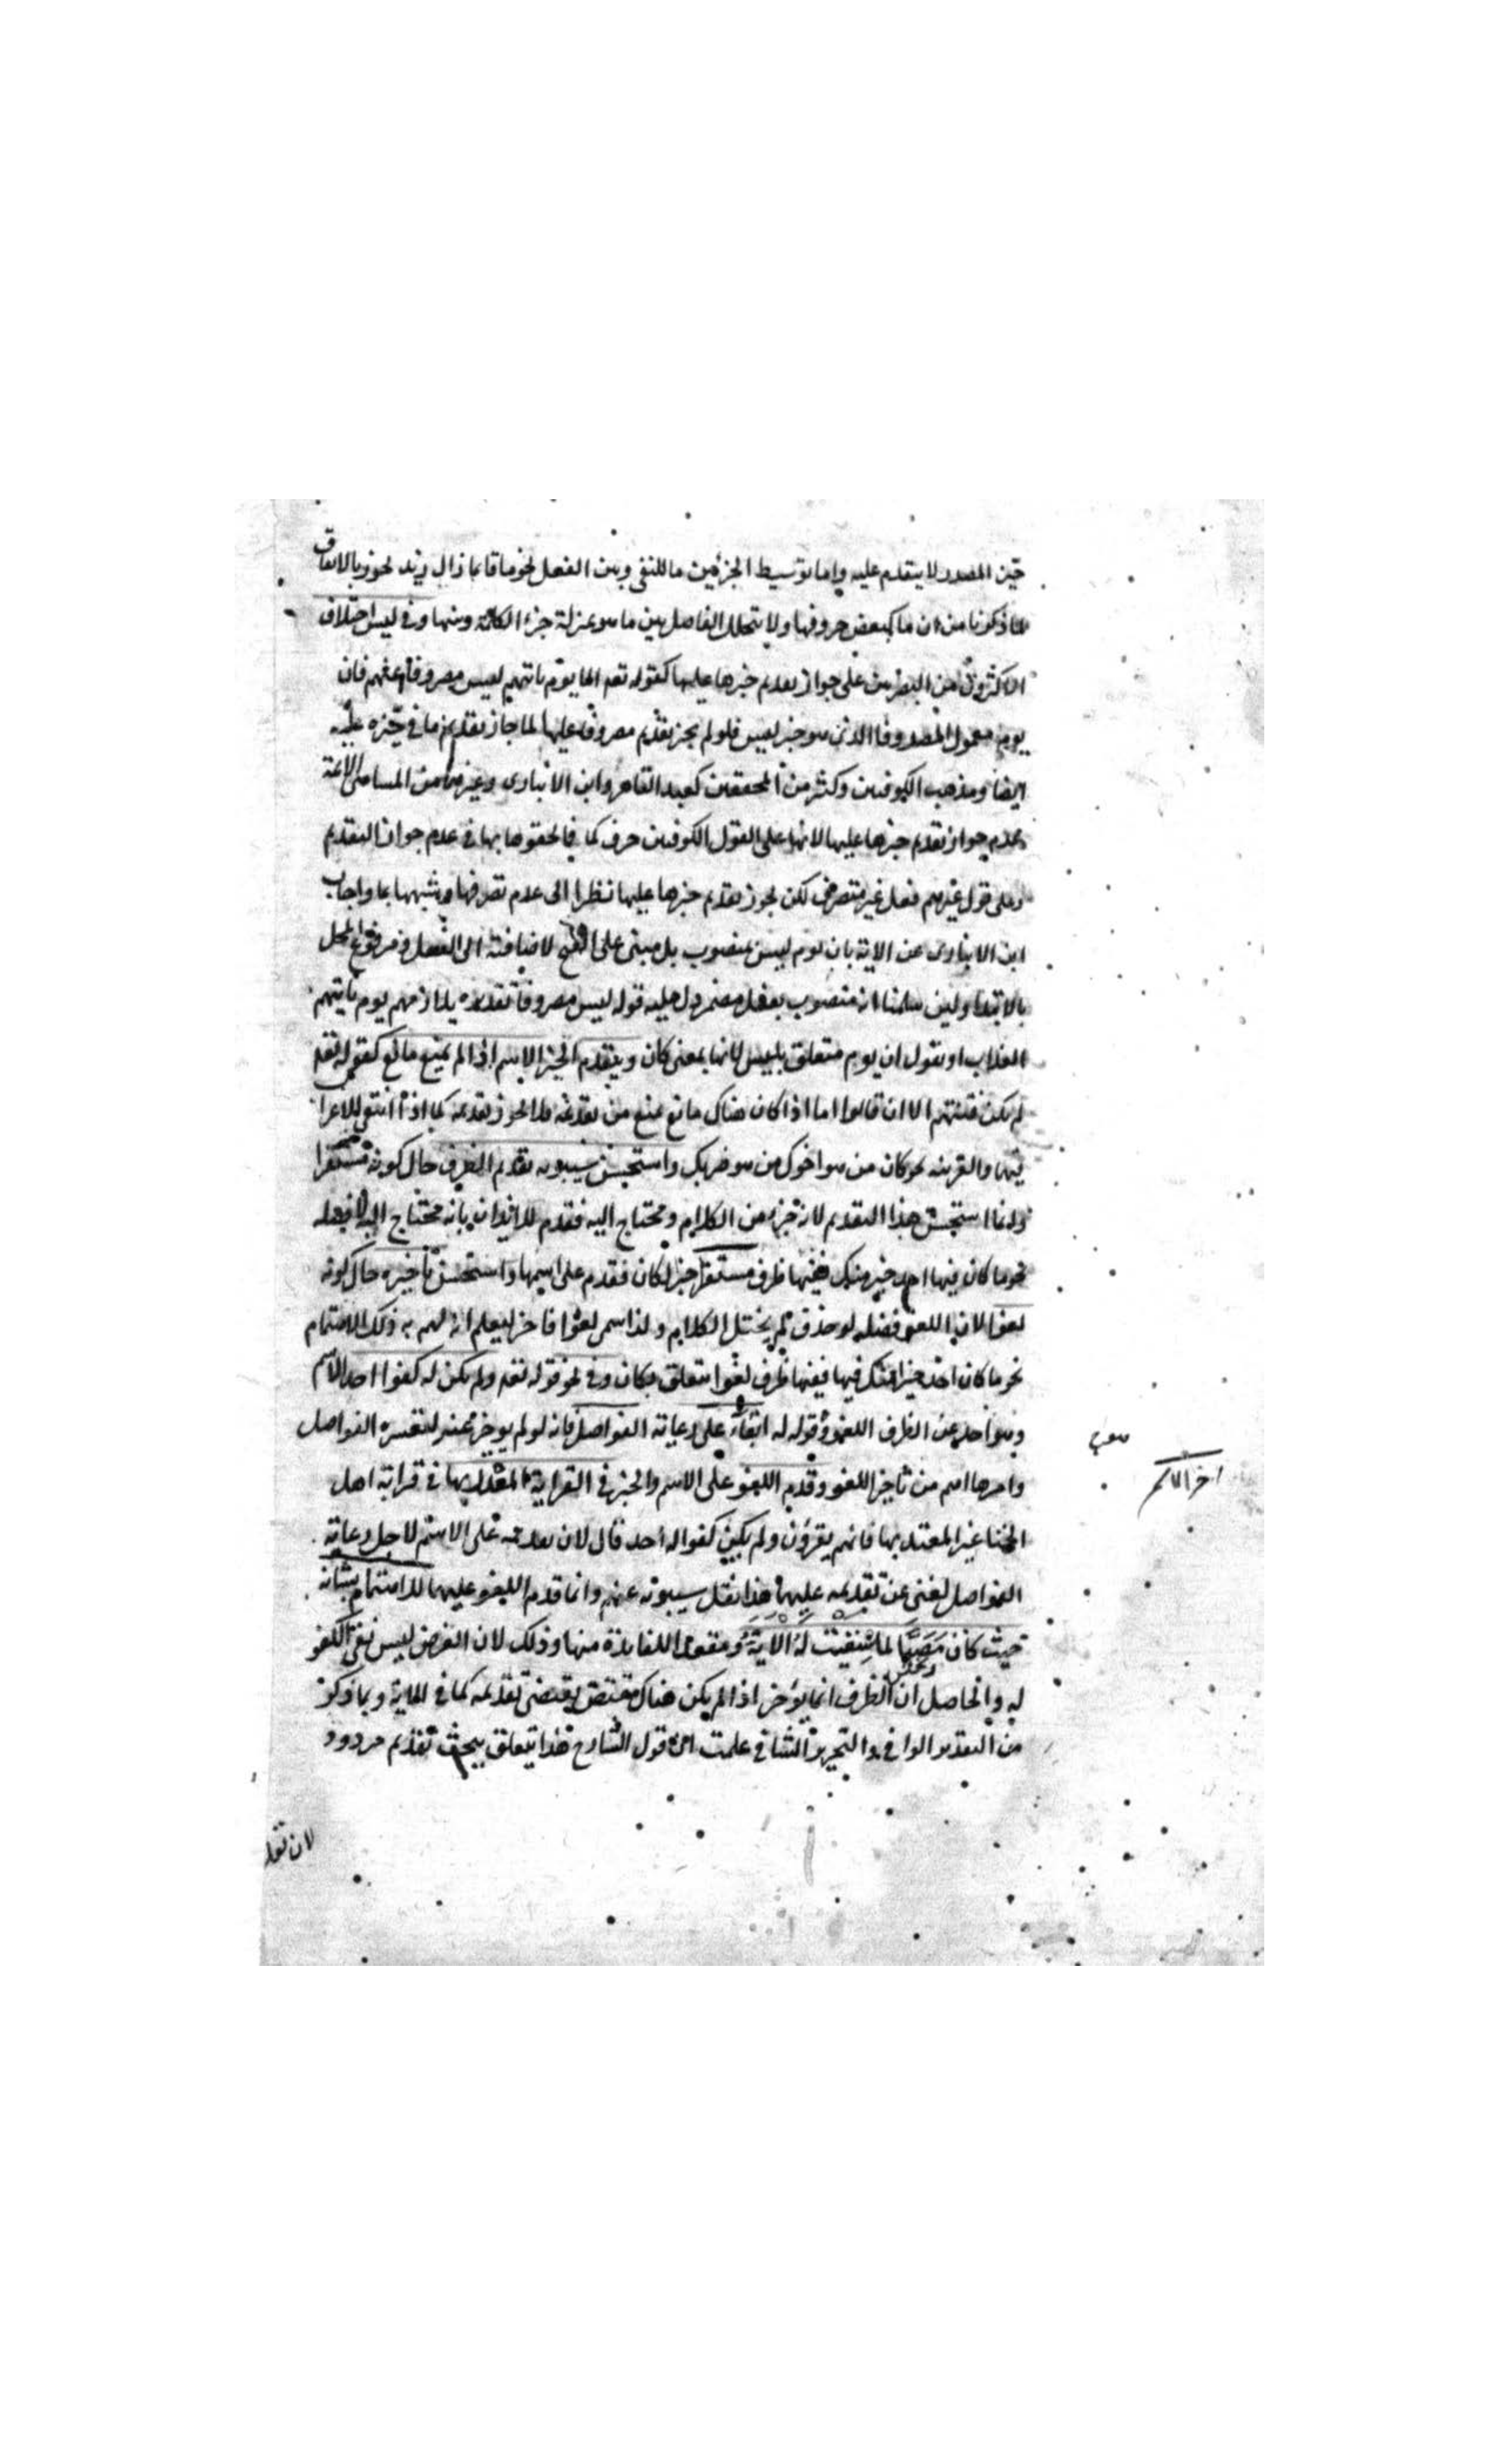 حيز المصدر لا يتقدم عليه واما توسيط الخبر بين ما للنفي وبين الفعل نحو ما قائما زال زيد نحوز بالاتفاق
لما ذكرنا من ان ما كبعض حروفها ولا يتخلل الفاصل بين ما هو بمنزلة جزء الكلمة وبينها وفي ليس اختلاف
الاكثرون من البصريين على جواز تقديم خبرها عليها كقوله تعه الا يوم يأتيهم ليس مصروفا عنهم فان
يوم معمول لمصروفا الذي هو خبر ليس فلو لم يجز تقديم مصروفا عليها لما جاز تقديم ما في حيزه عليه
ايضا ومذهب الكوفيين وكثير من المحققين كعبد القاهر وابن الانباري وغيرهما من
عدم جواز تقديم خبرها عليها لانها على القول الكوفيين حرف كما فالحقوها بها في عدم جواز التقديم
وعلى قول غيرهم فعل غير متصرف لكن يجوز تقديم خبرها عليها نظرا الى عدم تصرفها وشبهها بما واجاب
ابن الانباري عن الاية بان يوم ليس بمنصوب بل مبنى على الفتح لاضافته الى الفعل ومرفوع المحل
بالابتداء ولين سلمنا انه منصوب بفعل مضمر دل عليه قوله ليس مصروفا تقديره يلازمهم يوم يأتيهم
العذاب او نقول ان يوم متعلق بليس لانها بمعنى كان ويتقدم الخبر الاسم اذا لم يمنع مانع كقوله تعه
لم تكن فتنتهم الا ان قالوا اما اذا كان هناك مانع يمنع من تقديمه فلا يجوز تقديمه كما اذا انتفى الاعرا
فيها والقرينه نحو كان من هو اخوك من هو ضربك واستحسن سيبويه تقديم الظرف حال كونه مستقرا
وانما استحسن هذا التقديم لانه جزء من الكلام ومحتاج اليه فقدم للايذان بانه محتاج اليه لا فضله
نحو ما كان فيها احد خير منك ففيها ظرف مستقر خبر لكان فقدم على اسمها واستحسن تأخيره حال كونه
لغوا لان اللغو فضله لو حذف لم يختل الكلام ولذا سمى لغوا فاخر ليعلم انه لهم به ذلك الاهتمام
نحو ما كان احد خيرا منك فيها ففيها ظرف لغوا متعلق بكان وفي نحو قوله تعه ولم يكن له كفوا احد الاسم
وهو احد عن الظرف اللغو وقوله له ابقاء على رعاية الفواصل فانه لو لم يوخر عنه لتغيره الفواصل
وامرها اهم من تأخير اللغو وقدم اللغو على الاسم والخبر في القراءة المعتد بها في قراية اهل
الجفا غير المعتد بها فانهم يقرؤن ولم يكن كفوا له احد قال لان تقديمه على الاسم لاجل رعاية
الفواصل لغنى عن تقديمه عليهما هذا نقل سيبويه عنهم وانما قدم اللغو عليهما للاهتمام بشانه
حيث كان مَصَبًّا لما سيقت له الآية ومعقود الفايدة منها وذلك لان الغرض ليس نفي الكفو
له والحاصل ان الظرف انما يؤخر اذا لم يكن هناك مقتض يقتضى تقديمه كما في الاية وبما ذكر
من التقدير الوافي والتحرير الشافي علمت ان قول الشارح هذا يتعلق ببحث تقديم مردود
اخر الاسم
لان تقد